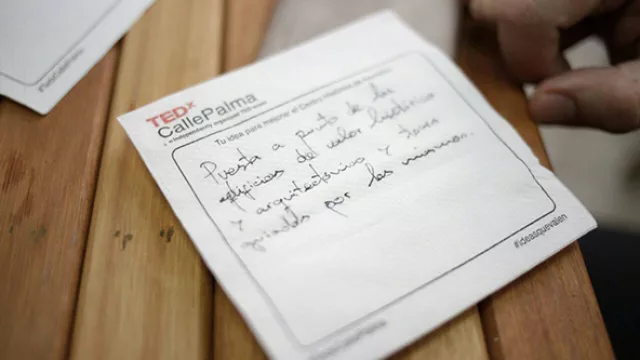 TEDx
CallePalma
x = independently organized TED event
Tu idea para mejorar el Centro Histórico de
Puesta a punto de los
edificios del valor histórico
y arquitectónico y tours
guiados por los mismos.
#ideasquevalen
CallePalma